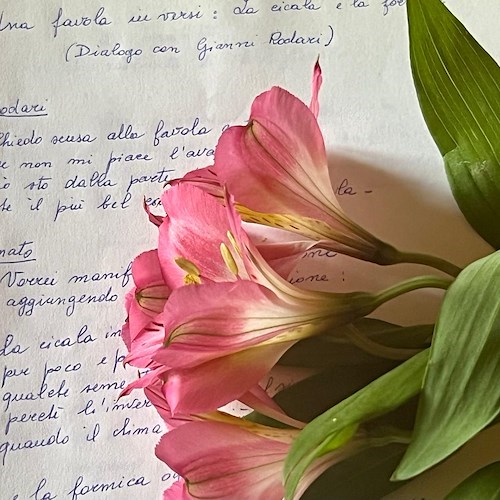 Una favola in versi: La cicala e la for
(Dialogo con Gianni Rodari)
odari
Chiedo scusa alla favola
non mi piace l'ava
io sto dalla parte la-
il più bel
nato
Vorrei manif
aggiungendo ione:
La cicala in
per poco e p
qualche seme
perché l'inver
quando il clima
e la formica